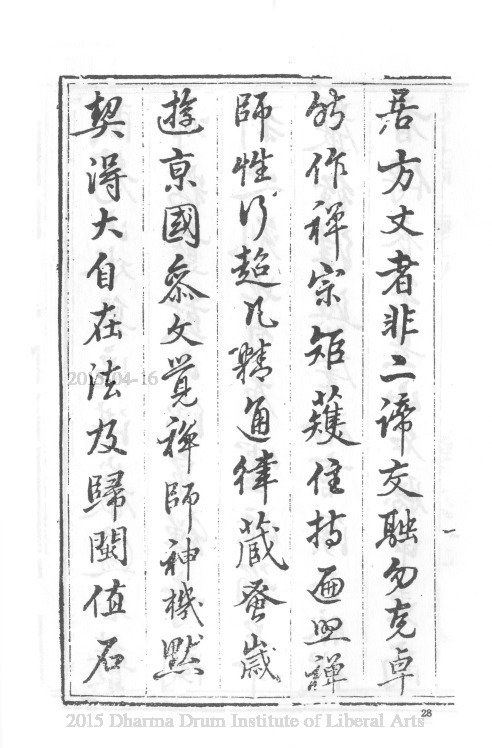 居方丈者非二諦交融勿克卓
然作禪宗矩矱住持遍照禪
師性行超凡精通律藏蚤歲
遊京國參文覺禪師神機默
契得大自在法及歸閩值石
2015-04-16
28
2015 Dharma Drum Institute of Liberal Arts